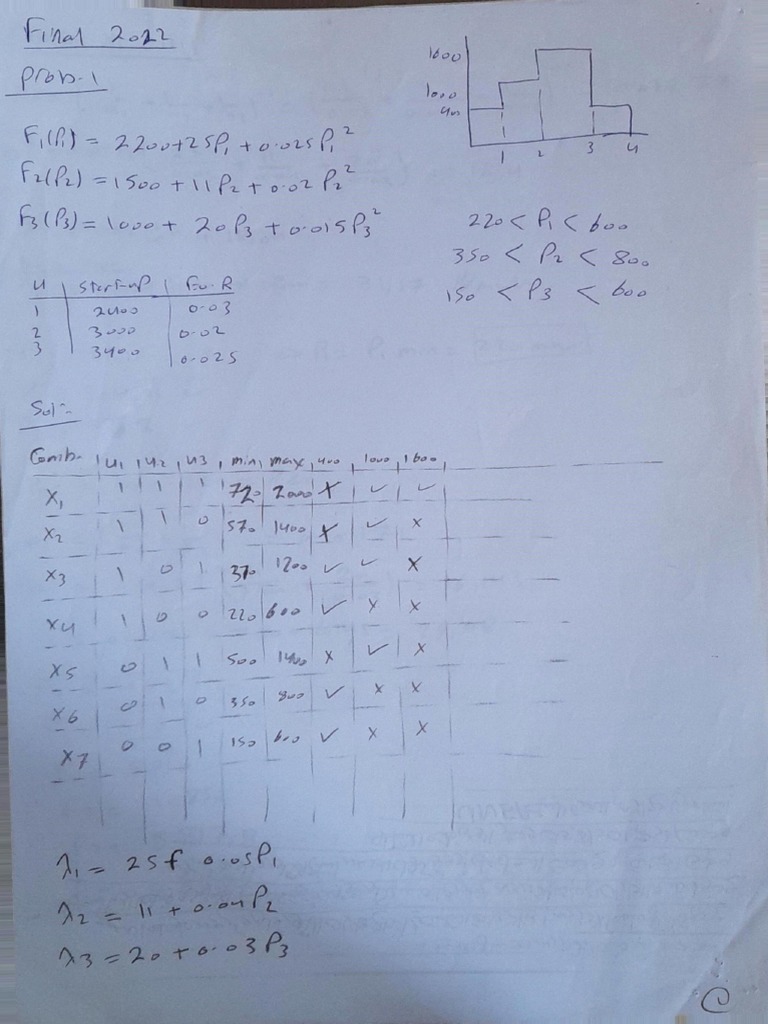 Final 2022
Prob. 1
1600
1000
400
1 2 3 4
F1(P1) = 2200+25P1 + 0.025P1²
F2(P2) = 1500 + 11P2 + 0.02 P2²
F3(P3) = 1000 + 20P3 + 0.015P3²
220 < P1 < 600
350 < P2 < 800
150 < P3 < 600
U | start-up | Fu. R
1 | 2400 | 0.03
2 | 3000 | 0.02
3 | 3400 | 0.025
Sol:-
Comb. | U1 | U2 | U3 | min | max | 400 | 1000 | 1600
X1 | 1 | 1 | 1 | 720 | 2000 | ✗ | ✓ | ✓
X2 | 1 | 1 | 0 | 570 | 1400 | ✗ | ✓ | ✗
X3 | 1 | 0 | 1 | 370 | 1200 | ✓ | ✓ | ✗
X4 | 1 | 0 | 0 | 220 | 600 | ✓ | ✗ | ✗
X5 | 0 | 1 | 1 | 500 | 1400 | ✗ | ✓ | ✗
X6 | 0 | 1 | 0 | 350 | 800 | ✓ | ✗ | ✗
X7 | 0 | 0 | 1 | 150 | 600 | ✓ | ✗ | ✗
λ1 = 25+ 0.05P1
λ2 = 11 + 0.04P2
λ3 = 20 + 0.03P3